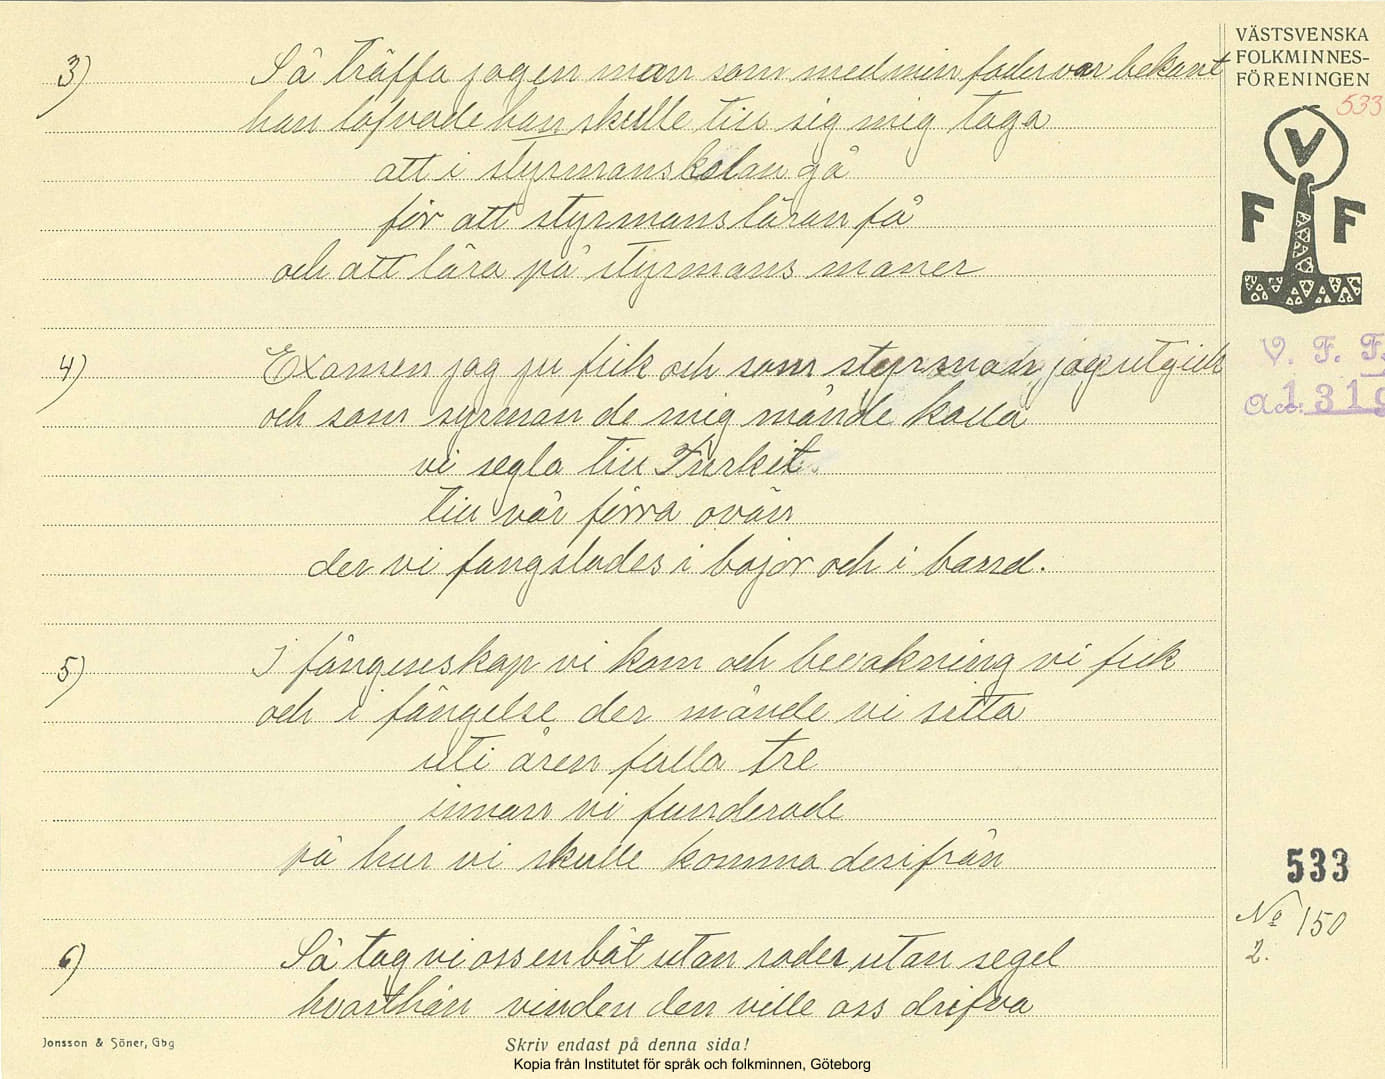 VÄSTSVENSKA
FOLKMINNES-
FÖRENINGEN
533
V
F F
V. F. F.
Acc. 1319
3) Så träffa jag en man som med min fader var bekant
han lofvade han skulle till sig mig taga
att i styrmanskolan gå
för att styrmansläran få
och att lära på styrmans maner
4) Examen jag ju fick och som styrman jag utgick
och som syrman de mig månde kalla
vi segla till Turkit
till vår förra ovän
der vi fangslades i bojor och i band.
5) I fångenskap vi kom och bevakning vi fick
och i fängelse der månde vi sitta
uti åren fulla tre
innan vi funderade
på hur vi skulle komma derifrån
533
No 150
2.
6) Så tog vi oss en båt utan roder utan segel
hvarthän vinden den ville oss drifva
Jonsson & Söner, Gbg
Skriv endast på denna sida!
Kopia från Institutet för språk och folkminnen, Göteborg